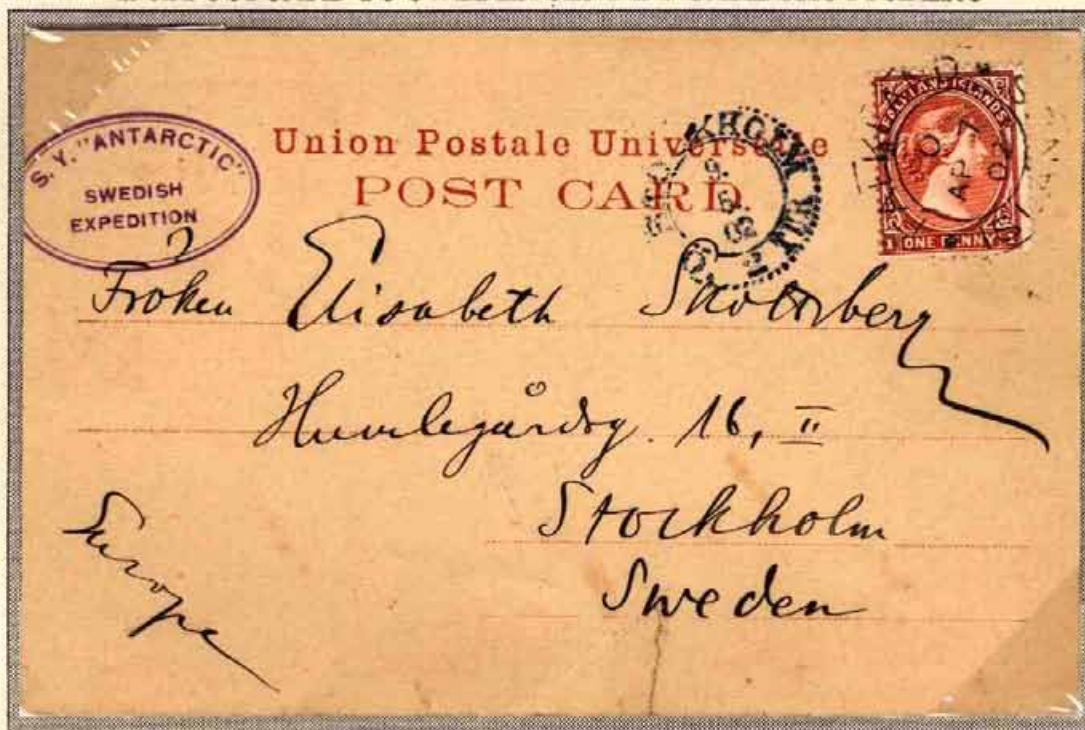 S. Y. "ANTARCTIC"
SWEDISH
EXPEDITION
Union Postale Universelle
POST CARD.
STOCKHOLM
9.
5.
02
2 TUR
FALKLAND ISLANDS
ONE PENNY
FALKLAND
AP 7
02
Fröken Elisabeth Skottsberg
Humlegårdsg. 16, II
Stockholm
Sweden
Europe